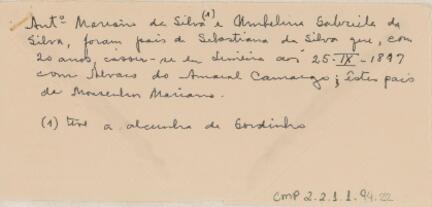 Antº Mariano da Silva (1) e Umbelina Gabriela da
Silva, foram pais de Sebastiana da Silva que, com
20 anos, casou-se em Limeira aos 25-IX-1897
com Alvaro do Amaral Camargo; estes pais
de Monsenhor Mariano.
(1) teve a alcunha de Gordinho
CMP 2.2.1.1.94.22